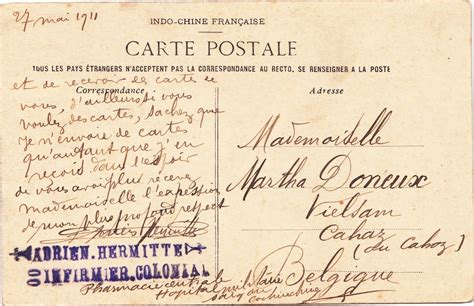 27 mai 1911
INDO-CHINE FRANÇAISE
CARTE POSTALE
TOUS LES PAYS ÉTRANGERS N'ACCEPTENT PAS LA CORRESPONDANCE AU RECTO, SE RENSEIGNER A LA POSTE
Correspondance
Adresse
et de recevoir des cartes de
vous, d'ailleurs si vous
voulez des cartes, sachez que
je n'envoie de cartes
qu'autant que j'en
reçois dans l'espoir
de vous avoir plus recevez
mademoiselle l'expression
de mon plus profond respect
Adrien Hermitte
ADRIEN. HERMITTE
INFIRMIER. COLONIAL
Pharmacie centrale
Hôpital militaire
Saïgon Cochinchine
Mademoiselle
Martha Doneux
Vielsam
Cahay
(du Cahoz)
Belgique